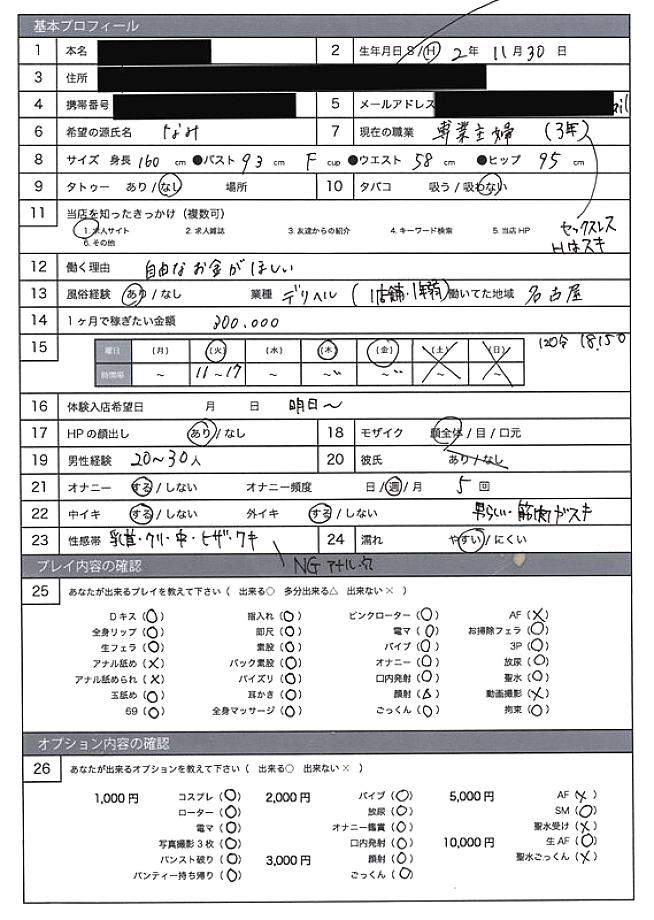 基本プロフィール
1 本名 2 生年月日 S/H 2年 11月30日
3 住所
4 携帯番号 5 メールアドレス
6 希望の源氏名 なみ 7 現在の職業 専業主婦 (3年)
8 サイズ 身長 160 cm ●バスト 93 cm F cup ●ウエスト 58 cm ●ヒップ 95 cm
9 タトゥー あり/なし 場所 10 タバコ 吸う/吸わない
11 当店を知ったきっかけ(複数可)
1.求人サイト 2.求人雑誌 3.友達からの紹介 4.キーワード検索 5.当店HP
6.その他
セックスレス
Hはスキ
12 働く理由 自由なお金がほしい
13 風俗経験 あり/なし 業種 デリヘル (1店舗・1年弱) 働いてた地域 名古屋
14 1ヶ月で稼ぎたい金額 300.000
120分 18,150
15 曜日 (月) (火) (水) (木) (金) (土) (日)
時間帯 ~ 11~17 ~ ~〃 ~〃 ~ ~
16 体験入店希望日 月 日 明日~
17 HPの顔出し あり/なし 18 モザイク 顔全体/目/口元
19 男性経験 20~30人 20 彼氏 あり/なし
21 オナニー する/しない オナニー頻度 日/週/月 5回
22 中イキ する/しない 外イキ する/しない 男らしい・筋肉がスキ
23 性感帯 乳首・クリ・中・ヒザ・ワキ 24 濡れ やすい/にくい
NG アナル
プレイ内容の確認
25 あなたが出来るプレイを教えて下さい( 出来る○ 多分出来る△ 出来ない× )
Dキス(○) 指入れ(○) ピンクローター(○) AF(×)
全身リップ(○) 即尺(○) 電マ(○) お掃除フェラ(○)
生フェラ(○) 素股(○) バイブ(○) 3P(○)
アナル舐め(×) バック素股(○) オナニー(○) 放尿(○)
アナル舐められ(×) パイズリ(○) 口内発射(○) 聖水(○)
玉舐め(○) 耳かき(○) 顔射(△) 動画撮影(×)
69(○) 全身マッサージ(○) ごっくん(○) 拘束(○)
オプション内容の確認
26 あなたが出来るオプションを教えて下さい( 出来る○ 出来ない× )
1,000円 コスプレ(○) 2,000円 バイブ(○) 5,000円 AF(×)
ローター(○) 放尿(○) SM(○)
電マ(○) オナニー鑑賞(○) 聖水受け(×)
写真撮影3枚(○) 口内発射(○) 10,000円 生AF(○)
パンスト破り(○) 3,000円 顔射(○) 聖水ごっくん(×)
パンティー持ち帰り(○) ごっくん(○)